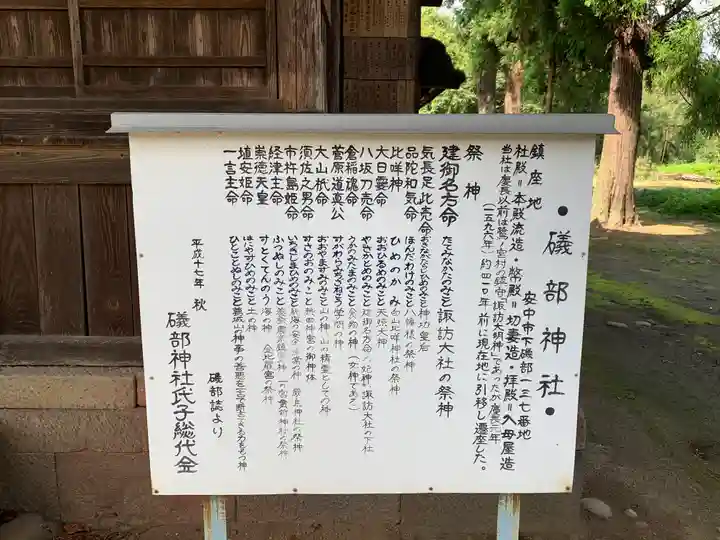 ・磯部神社・
鎮座地 安中市下磯部一三七番地
社殿=本殿流造・幣殿=切妻造・拝殿=入母屋造
当社は慶長以前は鷺ノ宮村の鎮守「諏訪大明神」であったが慶長元年
(一五九六年)約四一〇年前に現在地に引移し遷座した。
祭神
建御名方命 たてみなかたのみこと 諏訪大社の祭神
気長足比売命 神功皇后
品陀和気命 ほんだわけのみこと 八幡様の祭神
比咩神 ひめのかみ 白山比咩神社の祭神
大日孁命 おおひるめのみこと 天照大神
八坂刀売命 やさかとめのみこと 建御名方命の妃神 諏訪大社の下社
倉稲魂命 うかのみたまのみこと 食物の神(女神である)
菅原道真公 すがわらみちざねこう 学問の神
大山祇命 おおやまずみのみこと 山の神 山の精霊としての神
須佐之男命 すさのおのみこと
市杵島姫命 いちきしまひめのみこと 厳島神社の祭神
経津主命 ふつぬしのみこと
崇徳天皇 すとくてんのう 海の神 金比羅宮の祭神
埴安姫命 はにやすひめのみこと 土の神
一言主命 ひとことぬしのみこと 葛城山の神
平成十七年 秋
磯部誌より
磯部神社氏子総代会